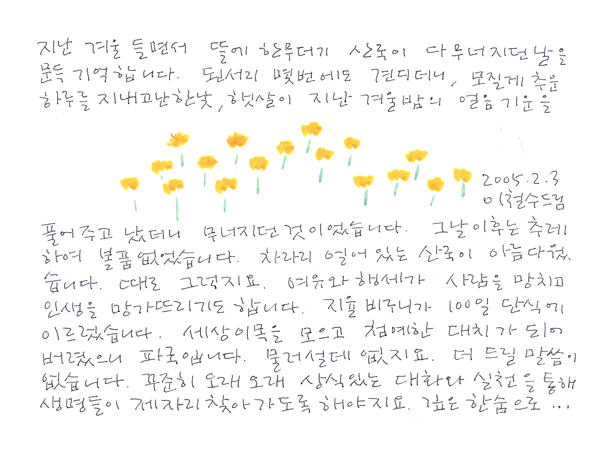 지난 겨울 들면서 뜰에 한무더기 산국이 다 무너지던 날을
문득 기억합니다. 된서리 몇번에도 견디더니, 모질게 추운
하루를 지내고난 한낮, 햇살이 지난 겨울밤의 얼음기운을
2005.2.3
이철수드림
풀어주고 났더니 무너지던 것이었습니다. 그날이후는 추레
하여 볼품없었습니다. 차라리 얼어있는 산국이 아름다웠
습니다. 때로 그렇지요. 여유와 행세가 사람을 망치고
인생을 망가뜨리기도 합니다. 지율 비구니가 100일 단식에
이르렀습니다. 세상이목을 모으고 첨예한 대치가 되어
버렸으니 파국입니다. 물러설데 없지요. 더 드릴 말씀이
없습니다. 꾸준히 오래오래 상식있는 대화와 실천을 통해
생명들이 제자리 찾아가도록 해야지요. 깊은 한숨으로 …